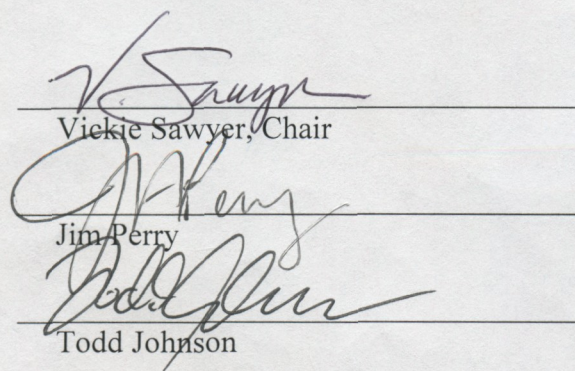 V. Sawyer
Vickie Sawyer, Chair
J Perry
Jim Perry
Todd Johnson
Todd Johnson